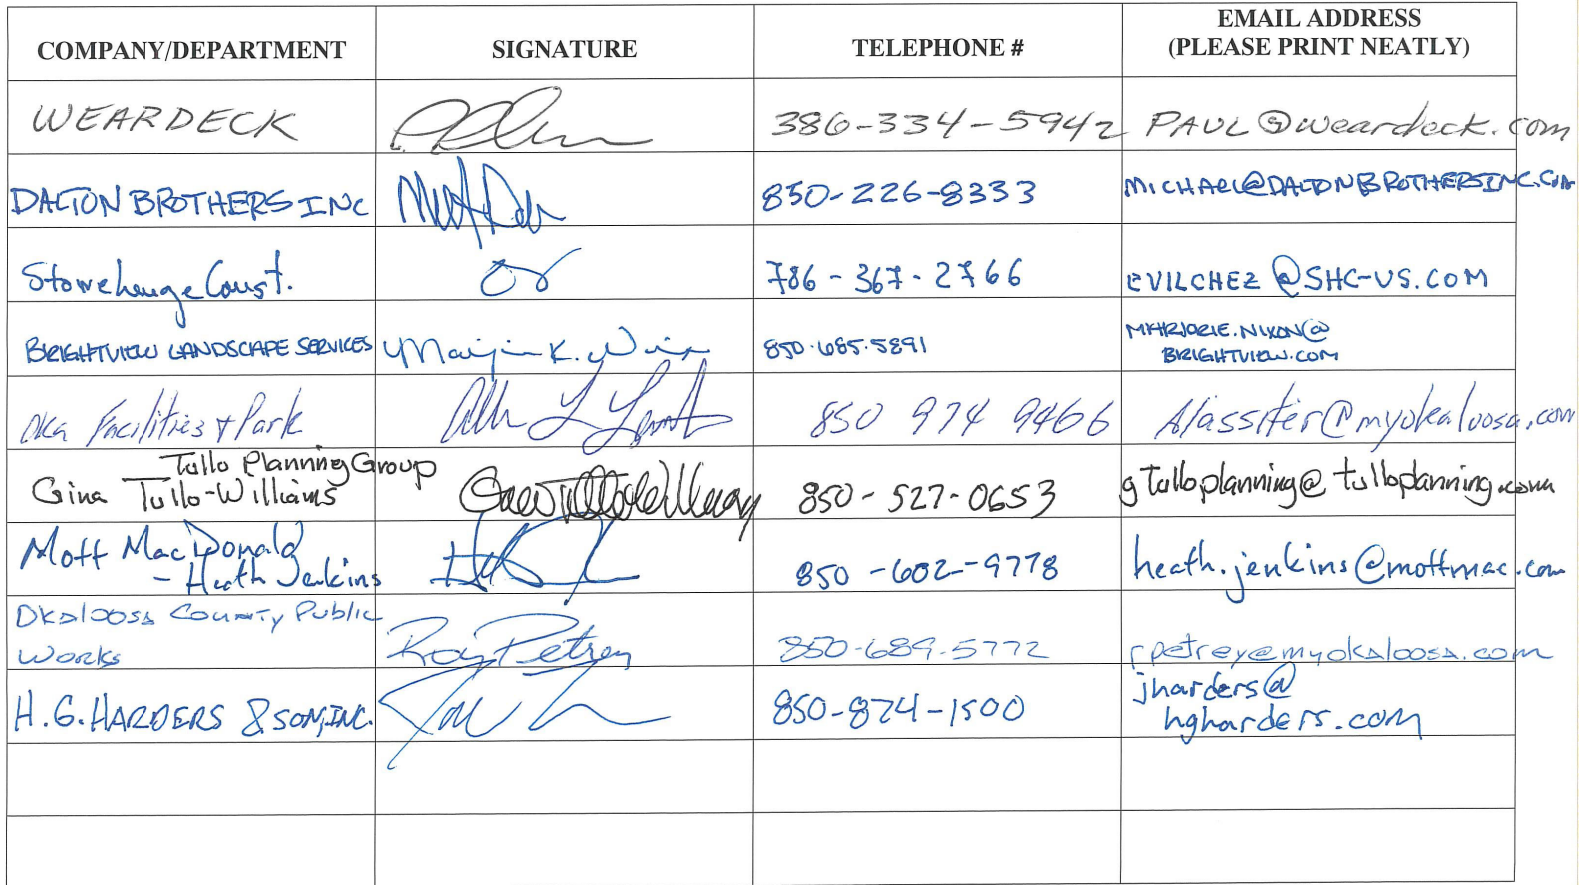 COMPANY/DEPARTMENT SIGNATURE TELEPHONE # EMAIL ADDRESS
(PLEASE PRINT NEATLY)
WEARDECK 386-334-5942 PAUL@weardeck.com
DALTON BROTHERS INC 850-226-8333 MICHAEL@DALTONBROTHERSINC.COM
Stonehenge Const. 786-367-2766 EVILCHEZ@SHC-US.COM
BRIGHTVIEW LANDSCAPE SERVICES 850.685.5891 MARJORIE.NIXON@
BRIGHTVIEW.COM
OKA Facilities & Park 850 974 9466 Alassiter@myokaloosa.com
Tullo Planning Group
Gina Tullo-Williams 850-527-0653 gtulloplanning@tulloplanning.com
Mott MacDonald
- Heath Jenkins 850-602-9778 heath.jenkins@mottmac.com
Okaloosa County Public
Works Roy Petrey 850-689-5772 rpetrey@myokaloosa.com
H.G. HARDERS & SON, INC. 850-874-1500 jharders@
hgharders.com